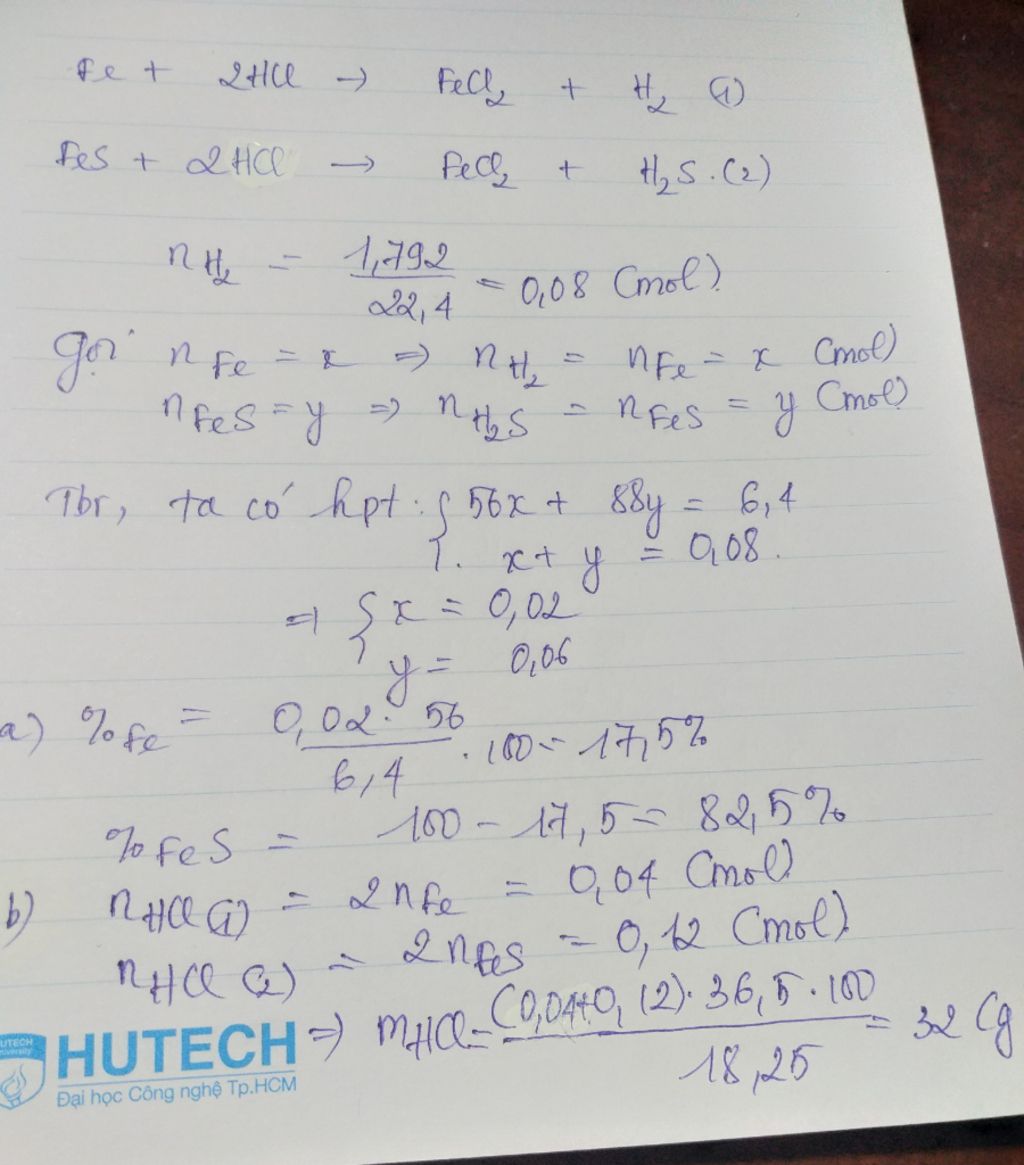 Fe + 2HCl → FeCl₂ + H₂ (1)
FeS + 2HCl → FeCl₂ + H₂S. (2)
n H₂ = 1,792 / 22,4 = 0,08 (mol)
Gọi n Fe = x ⇒ n H₂ = n Fe = x (mol)
n FeS = y ⇒ n H₂S = n FeS = y (mol)
Tbr, ta có hpt: { 56x + 88y = 6,4
x + y = 0,08.
⇒ { x = 0,02
y = 0,06
a) % Fe = 0,02 . 56 / 6,4 . 100 = 17,5%
% FeS = 100 - 17,5 = 82,5%
b) n HCl (1) = 2 n Fe = 0,04 (mol)
n HCl (2) = 2 n FeS = 0,12 (mol)
⇒ m HCl = (0,04+0,12) . 36,5 . 100 / 18,25 = 32 (g
HUTECH University
HUTECH
Đại học Công nghệ Tp.HCM